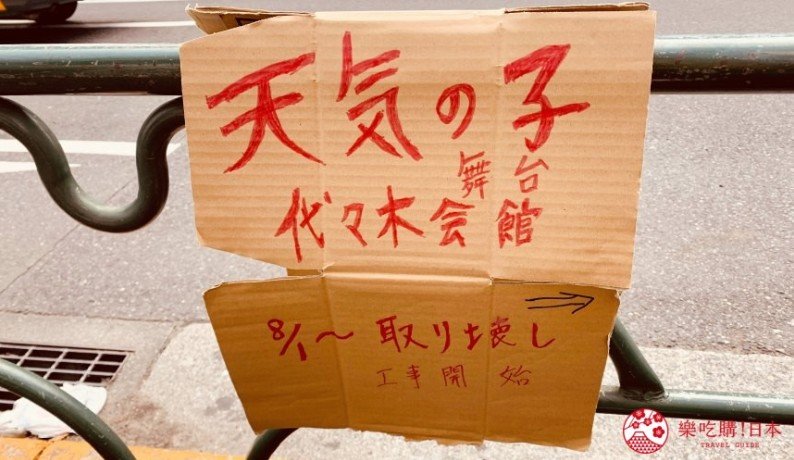 天気の子
舞台
代々木会館
8/1～ 取り壊し
工事開始
樂吃購!日本
TRAVEL GUIDE